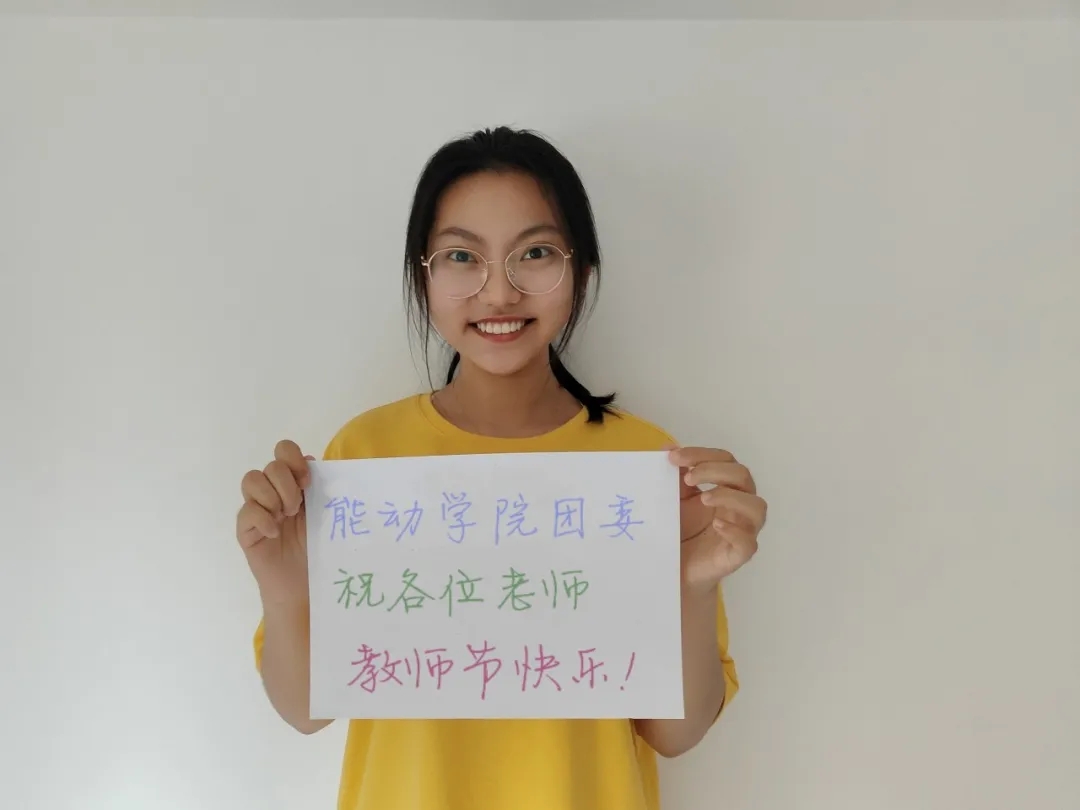 能动学院团委
祝各位老师
教师节快乐!